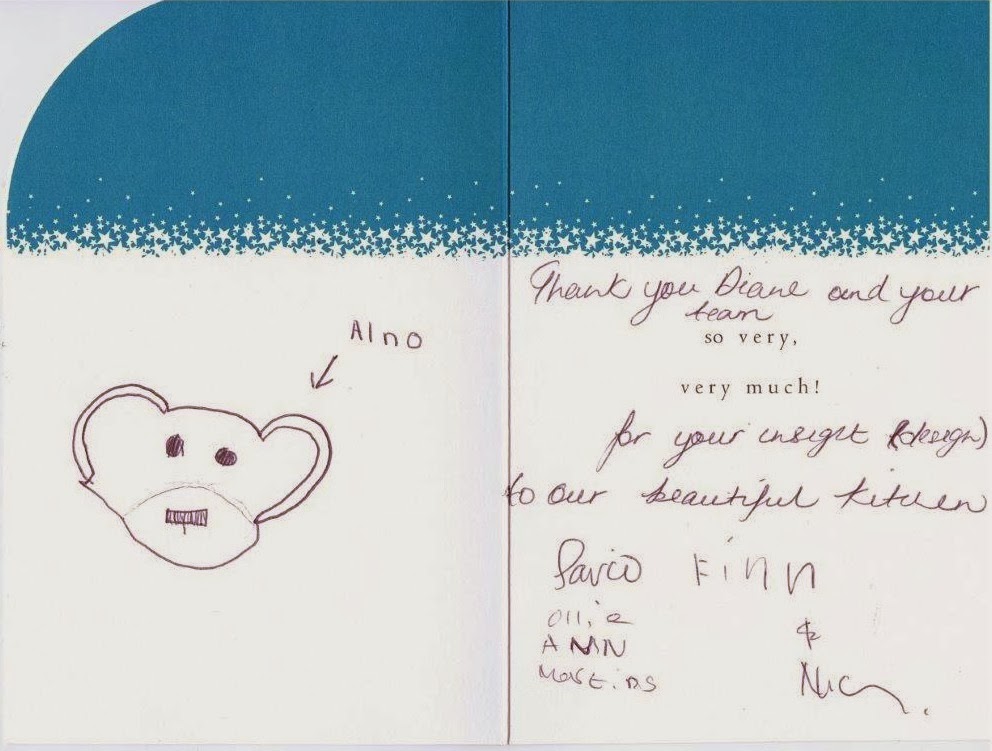 Alno
Thank you Diane and your
team
so very,
very much!
for your insight (design)
to our beautiful kitchen
Finn
Ollie
&
ANN